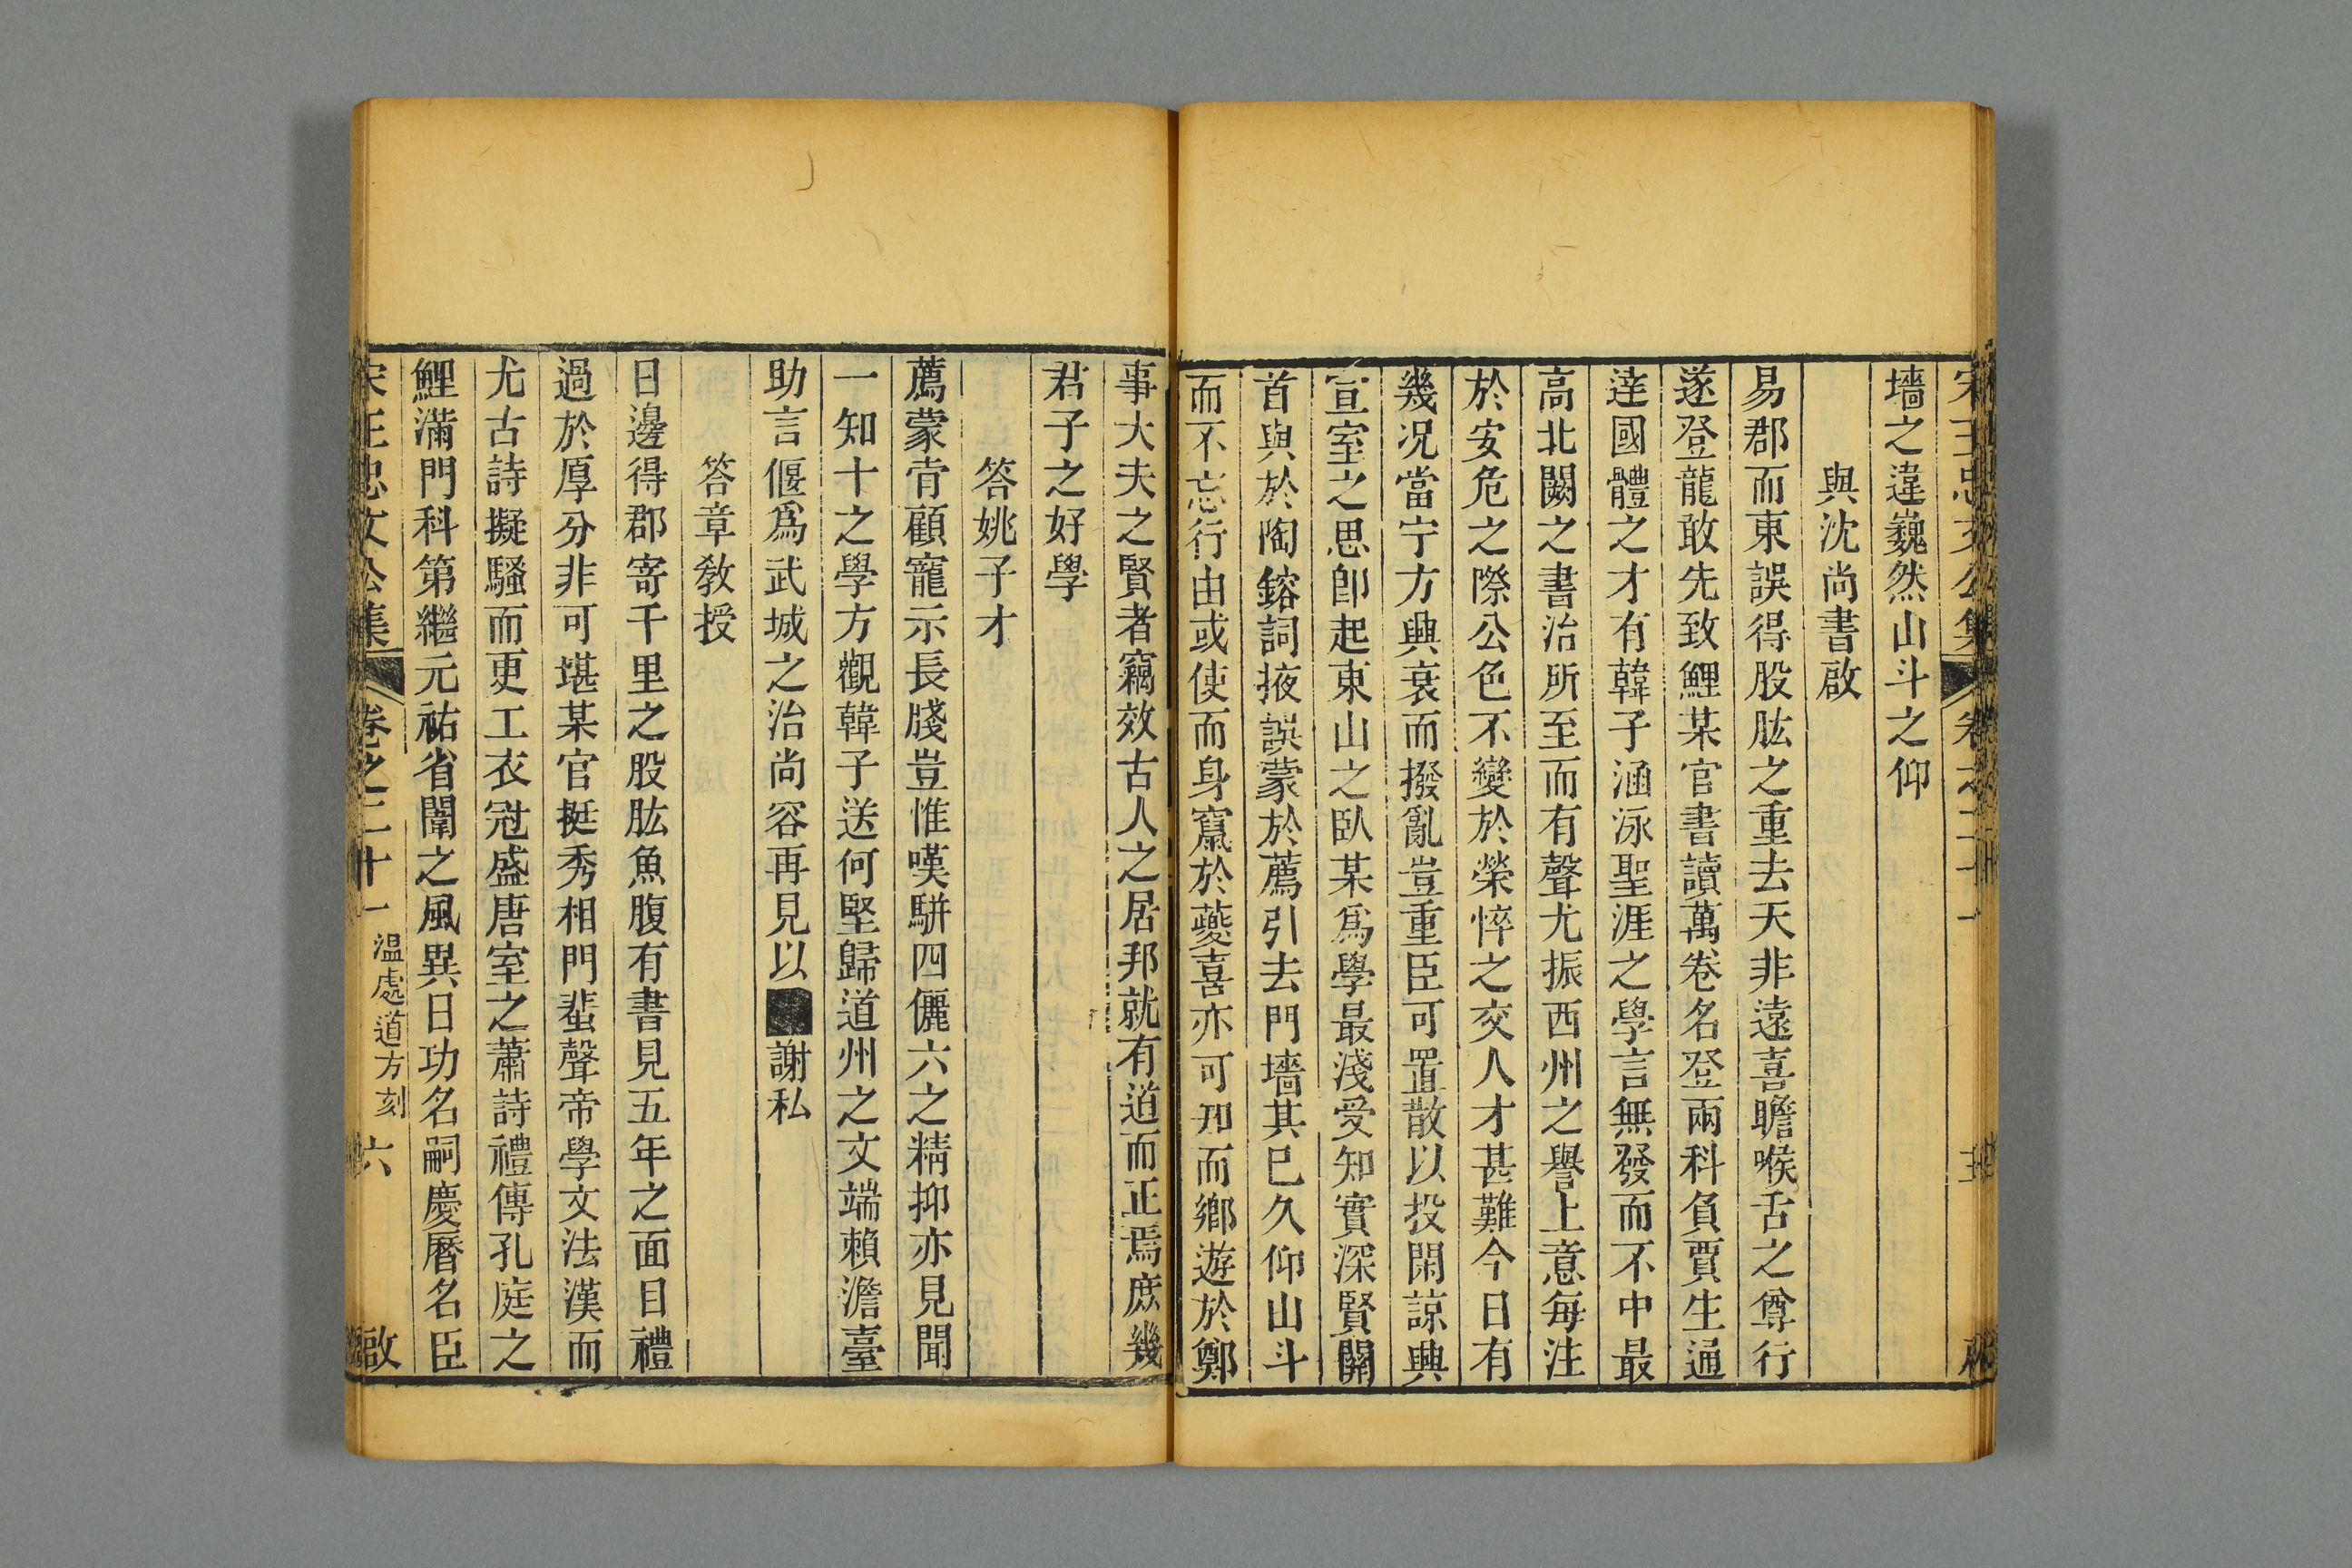 墻之違巍然山斗之仰
與沈尚書啟
易郡而東誤得股肱之重去天非遠喜瞻喉舌之尊行
遂登龍敢先致鯉某官書讀萬卷名登兩科負賈生通
達國體之才有韓子涵泳聖涯之學言無發而不中最
高北闕之書治所至而有聲尤振西州之譽上意每注
於安危之際公色不變於榮悴之交人才甚難今日有
幾况當宁方興衰而撥亂豈重臣可置散以投閑諒興
宣室之思卽起東山之臥某爲學最淺受知實深賢關
首與於陶鎔詞掖誤蒙於薦引去門墻其已久仰山斗
而不忘行由或使而身竄於夔喜亦可知而鄉遊於鄭
事大夫之賢者竊效古人之居邦就有道而正焉庶幾
君子之好學
答姚子才
薦蒙肯顧寵示長牋豈惟嘆駢四儷六之精抑亦見聞
一知十之學方觀韓子送何堅歸道州之文端賴澹臺
助言偃爲武城之治尚容再見以謝私
答章敎授
日邊得郡寄千里之股肱魚腹有書見五年之面目禮
過於厚分非可堪某官挺秀相門蜚聲帝學文法漢而
尤古詩擬騷而更工衣冠盛唐室之蕭詩禮傳孔庭之
鯉滿門科第繼元祐省闈之風異日功名嗣慶曆名臣
宋王忠文公集 卷之二十一 溫處道方刻 六 啟